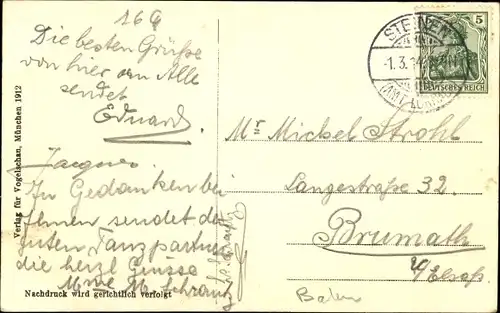 164
Die besten Grüße
von hier an Alle
sendet
Eduard.
Jacques.
In Gedanken bei
Ihnen sendet den
guten Tanzpartner
die herzl Grüsse
Mme M. Schrantz
Mr Mickel Strohl
Langestraße 32.
Brumath
i/Elsaß
Baden
STEINEN
1.3.14
(AMT LÖRRACH)
5
DEUTSCHES REICH
Verlag für Vogelschau, München 1912
Nachdruck wird gerichtlich verfolgt